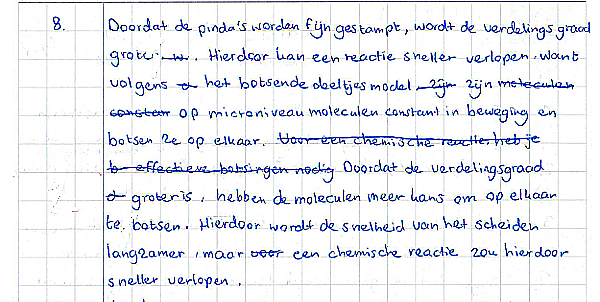 8. Doordat de pinda's worden fijn gestampt, wordt de verdelingsgraad
groter. Hierdoor kan een reactie sneller verlopen. Want
volgens het botsende deeltjes model zijn zijn moleculen
constant op microniveau moleculen constant in beweging en
botsen ze op elkaar. Voor een chemische reactie heb je
effectieve botsingen nodig Doordat de verdelingsgraad
groter is, hebben de moleculen meer kans om op elkaar
te botsen. Hierdoor wordt de snelheid van het scheiden
langzamer, maar voor een chemische reactie zou hierdoor
sneller verlopen.